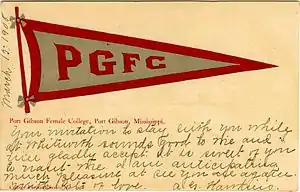 March, 13, 1906
PGFC
Port Gibson Female College, Port Gibson, Mississippi.
Your invitation to stay with you while
at Whitworth sounds good to me and I
nice gladly accept. It is sweet of you
to want me. I am anticipating
much pleasure at see you all again
of love. Hawkins.